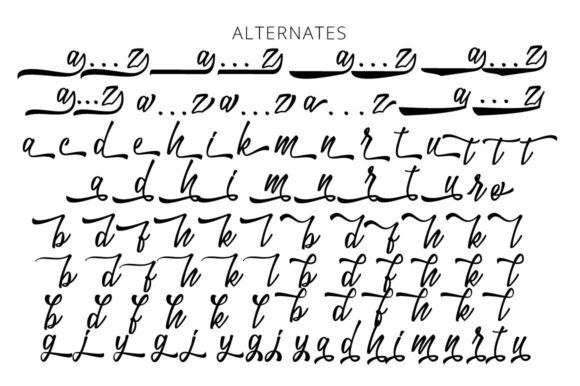 ALTERNATES
a...z a...z a...z a...z
a...z a...z a...z a...z a...z
a c d e h i k m n r t u t t t
a d h i m n r t u r o
b d f h k l b d f h k l
b d f h k l b d f h k l
b d f h k l b d f h k l
g j y g j y g j y a d h i m n r t u